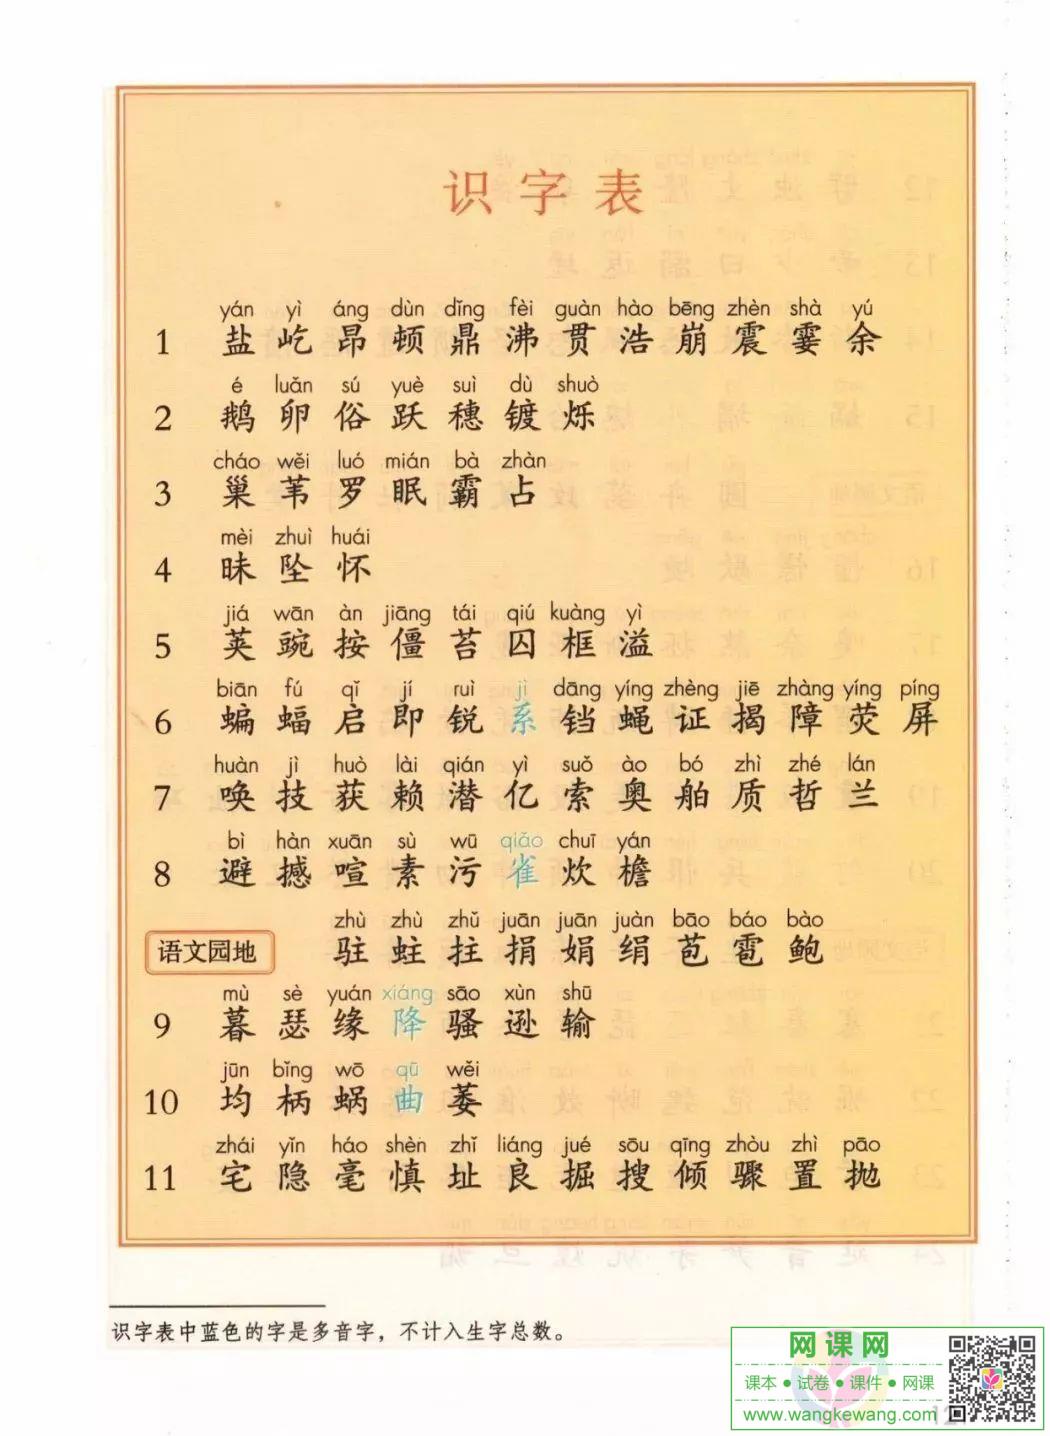 识字表
yán yì áng dùn dǐng fèi guàn hào bēng zhèn shà yú
1 盐 屹 昂 顿 鼎 沸 贯 浩 崩 震 霎 余
é luǎn sú yuè suì dù shuò
2 鹅 卵 俗 跃 穗 镀 烁
cháo wěi luó mián bà zhàn
3 巢 苇 罗 眠 霸 占
mèi zhuì huái
4 昧 坠 怀
jiá wān àn jiāng tái qiú kuàng yì
5 荚 豌 按 僵 苔 囚 框 溢
biān fú qǐ jí ruì jì dāng yíng zhèng jiē zhàng yíng píng
6 蝙 蝠 启 即 锐 系 铛 蝇 证 揭 障 荧 屏
huàn jì huò lài qián yì suǒ ào bó zhì zhé lán
7 唤 技 获 赖 潜 亿 索 奥 舶 质 哲 兰
bì hàn xuān sù wū qiǎo chuī yán
8 避 撼 喧 素 污 雀 炊 檐
zhù zhù zhǔ juān juān juàn bāo báo bào
语文园地 驻 蛀 拄 捐 娟 绢 苞 雹 鲍
mù sè yuán xiáng sāo xùn shū
9 暮 瑟 缘 降 骚 逊 输
jūn bǐng wō qū wěi
10 均 柄 蜗 曲 萎
zhái yǐn háo shèn zhǐ liáng jué sōu qīng zhòu zhì pāo
11 宅 隐 毫 慎 址 良 掘 搜 倾 骤 置 抛
识字表中蓝色的字是多音字，不计入生字总数。
网课网
课本●试卷●课件●网课
www.wangkewang.com